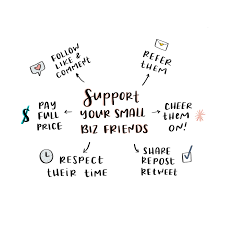 Support
YOUR SMALL
BIZ FRIENDS
FOLLOW
LIKE &
COMMENT
REFER
THEM
PAY
FULL
PRICE
CHEER
THEM
ON!
RESPECT
THEIR TIME
SHARE
REPOST
RETWEET